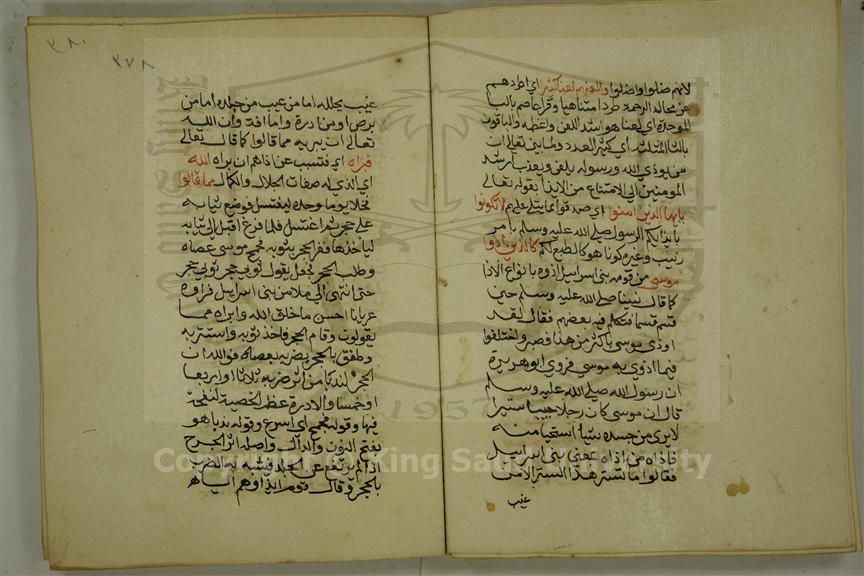 لانهم ضلوا واضلوا والعنهم لعنا كبيرا اي اطردهم
عن محال الرحمة طردا متناهيا وقرا عاصم بالبا
الموحدة اي لعنا هو اشد اللعن واعظمه والباقون
بالثا المثلثة اي كثير العدد ولما بين تعالى ان
من يوذي الله ورسوله يلعن ويعذب ارشد
المومنين الي الامتناع من الايذا بقوله تعالى
يايها الذين امنوا اي صدقوا بما يتلى عليهم لا تكونوا
بايذايكم الرسول صلى الله عليه وسلم بامر
زينب وغيره كونا هو كالطبع لكم كالذين اذوا
موسي من قومه بني اسراييل اذوه بانواع الاذا
كما قال نبينا صلى الله عليه وسلم حين
قسم قسما فتكلم فيه بعضهم فقال لقد
اوذي موسي باكثر من هذا فصبر واختلفوا
فيما اوذي به موسي فروي ابو هريرة
ان رسول الله صلي الله عليه وسلم
قال ان موسى كان رجلا حييا ستيرا
لا يري من جسده شيا استحيا منه
فاذاه من اذاه يعني بني اسراييل
فقالوا ما تستر هذا الستر الا من
عيب
٣٨٠
٣٧٨
عيب بجلده اما من عيب من جلده اما من
برص او من ادرة واما افة وان الله
تعالى ان يبريه مما قالوا كما قال تعالى
فبراه اي فتسبب عن اذاهم ان براه الله
اي الذي له صفات الجلال والكمال مما قالوا
فخلا يوما وحده ليغتسل فوضع ثيابه
على حجر ثم اغتسل فلما فرغ اقبل الى ثيابه
لياخذها ففر الحجر بثوبه فجمح موسى عصاه
وطلب الحجر فجعل يقول ثوبي حجر ثوبي حجر
حتى انتهى الي ملا من بني اسراييل فراوه
عريانا احسن ما خلق الله وابراه مما
يقولون وقام الحجر فاخذ ثوبه واستتر به
وطفق بالحجر يضربه بعصاه فوالله ان
الحجر لندبا من اثر ضربه ثلاثا او اربعا
او خمسا والادرة عظم الخصية لنفخة
فيها وقوله فجمح اي اسرع وقوله ندبا هو
بفتح النون والدال واصله اثر الجرح
اذا لم يرتفع عن الجلد فشبه به الضرب
بالحجر وقال قوم ايذاوهم اياه
Copyright © King Saud University
1957